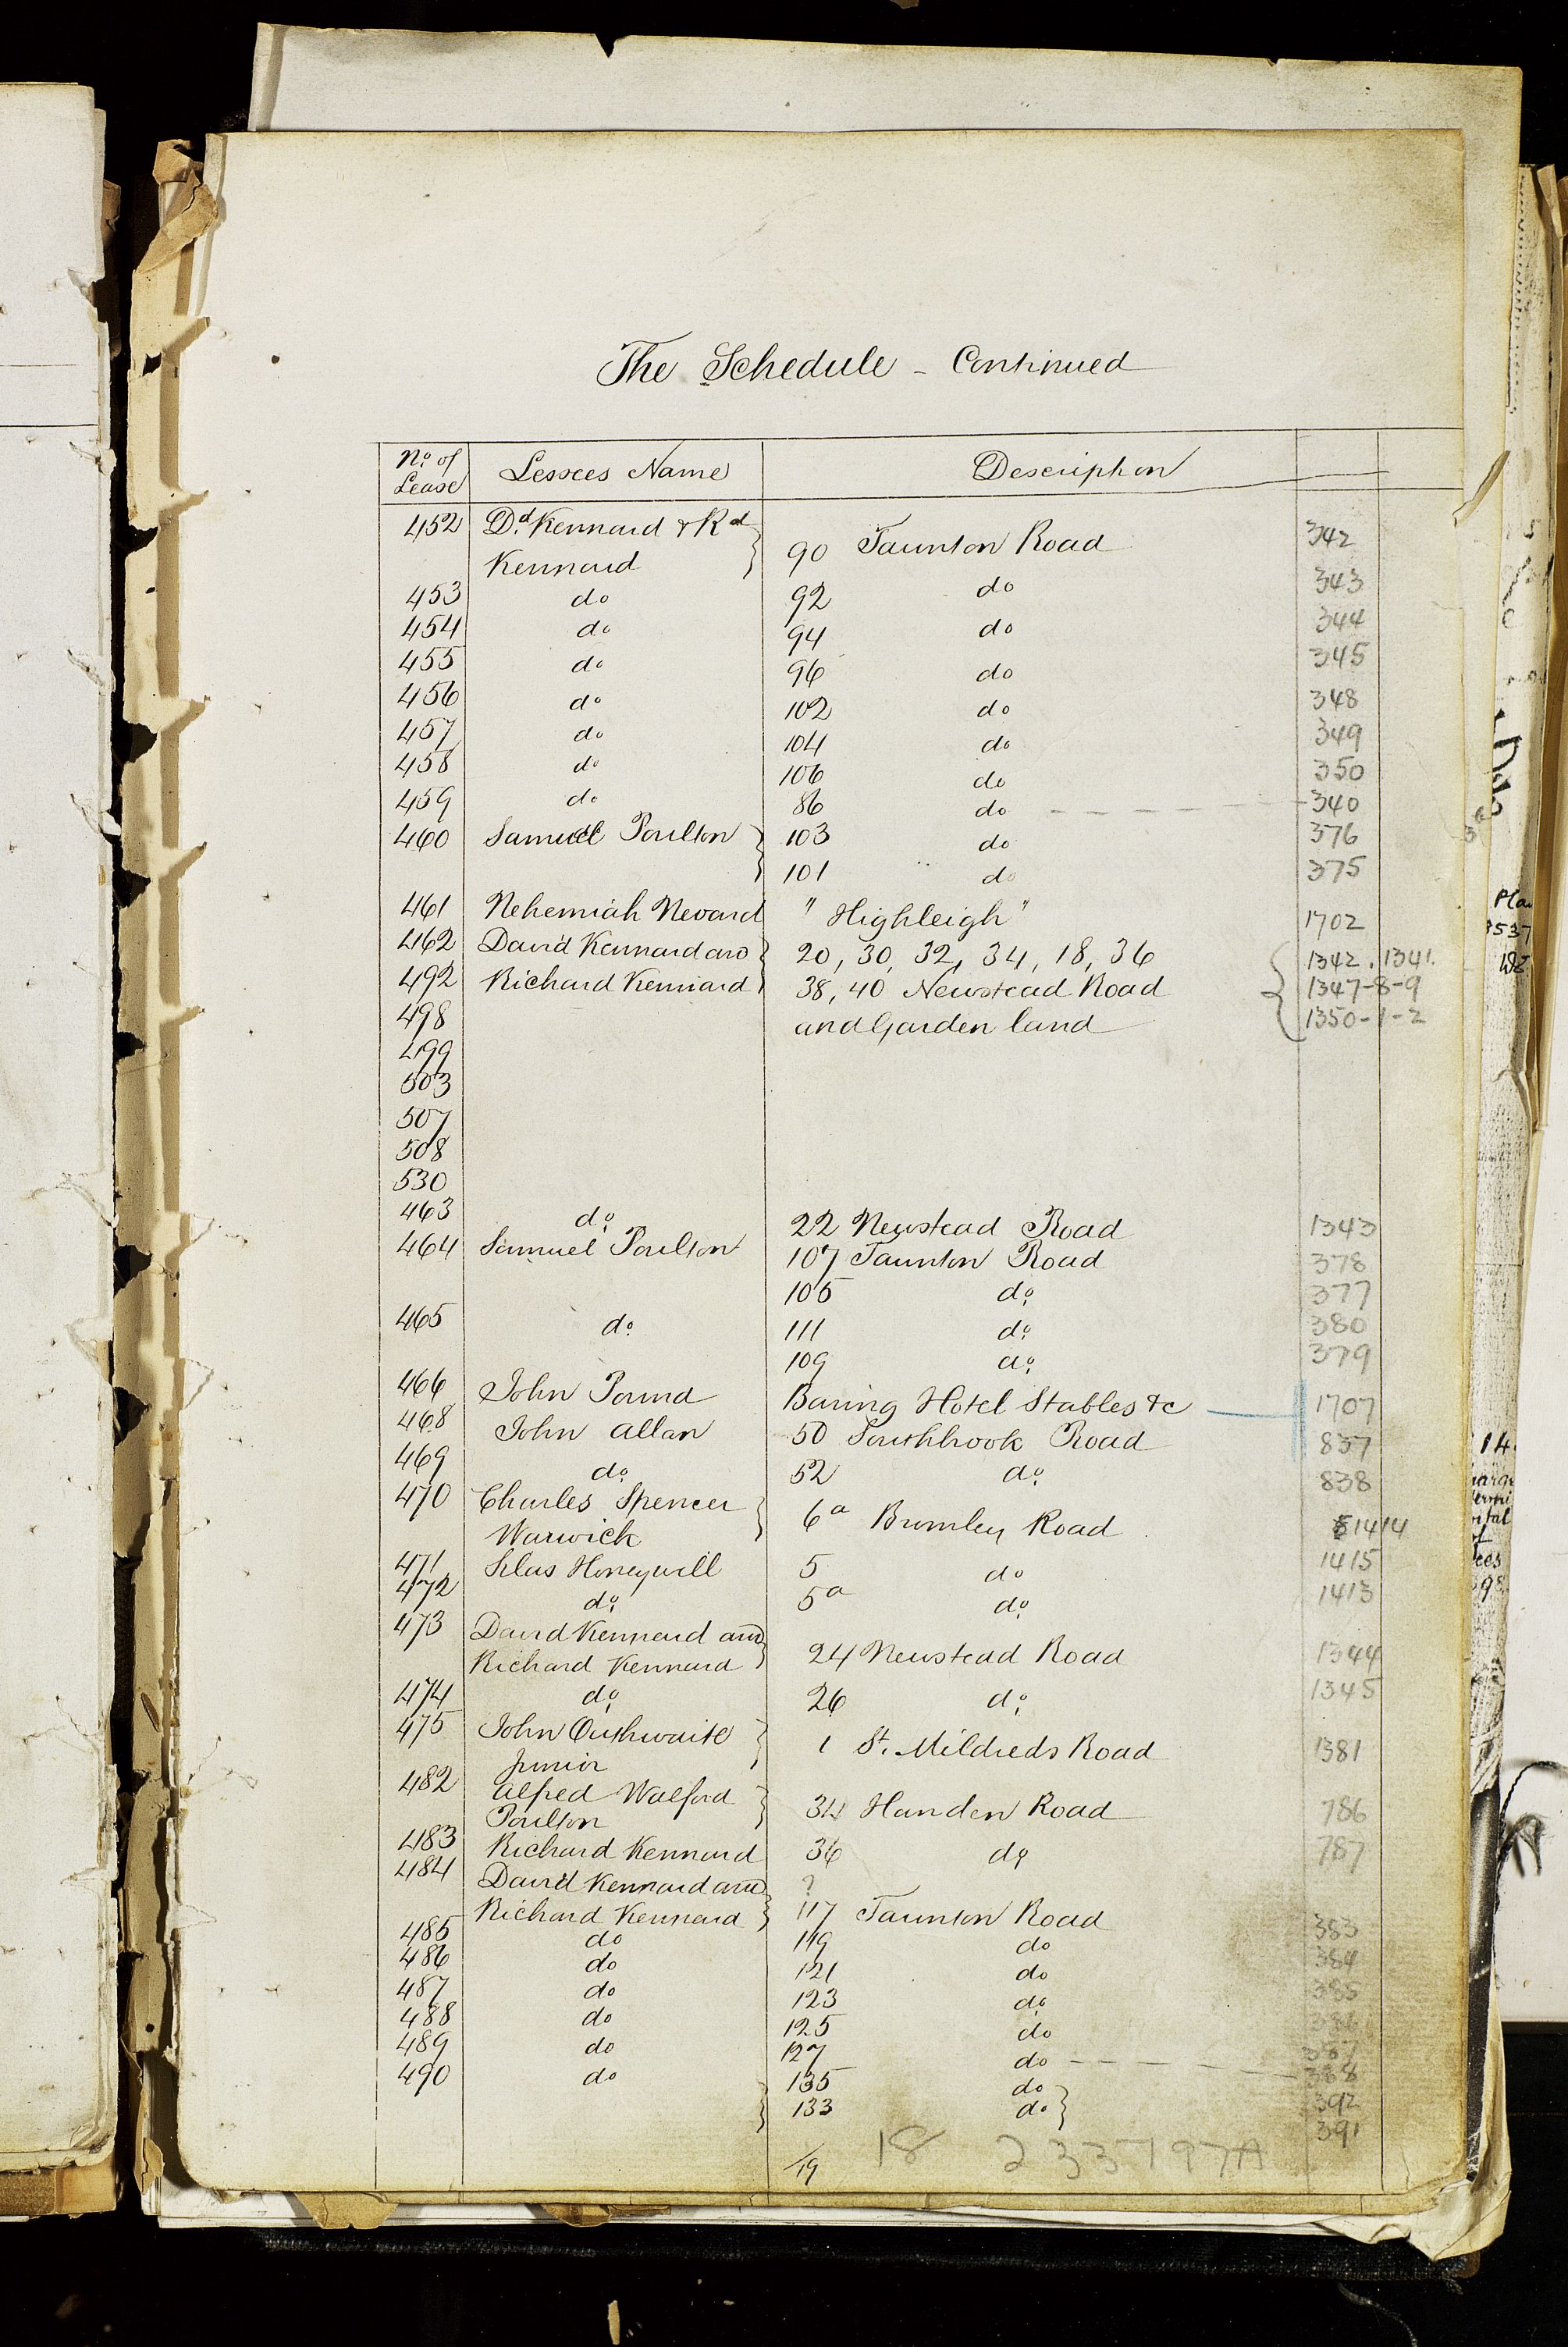 The Schedule - Continued
No. of Lease Lessees Name Description
452 Dd. Kennard & Rd
Kennard 90 Taunton Road 342
453 do 92 do 343
454 do 94 do 344
455 do 96 do 345
456 do 102 do 348
457 do 104 do 349
458 do 106 do 350
459 do 86 do 340
460 Samuel Poulton 103 do 376
101 do 375
461 Nehemiah Nevard "Highleigh" 1702
462 David Kennard and 20, 30, 32, 34, 18, 36 1342. 1341.
492 Richard Kennard 38, 40 Newstead Road 1347-8-9
498 and Garden land 1350-1-2
499
503
507
508
530
463 do. 22 Newstead Road 1343
464 Samuel Poulton 107 Taunton Road 378
105 do. 377
465 do. 111 do. 380
109 do. 379
466 John Pound Baring Hotel Stables &c 1707
468 John Allan 50 Southbrook Road 837
469 do. 52 do. 838
470 Charles Spencer
Warwick 6a Bromley Road 1414
471 Silas Honeywill 5 do 1415
472 do. 5a do. 1413
473 David Kennard and
Richard Kennard 24 Newstead Road 1344
474 do. 26 do. 1345
475 John Outhwaite
Junior 1 St. Mildreds Road 1381
482 Alfred Walford
Poulton 34 Handen Road 786
483 Richard Kennard 36 do 787
484 David Kennard and ?
Richard Kennard 117 Taunton Road 383
485 do 119 do 384
486 do 121 do 385
487 do 123 do. 386
488 do 125 do 387
489 do 127 do 388
490 do 135 do 392
133 do. 391
19 18 233797A